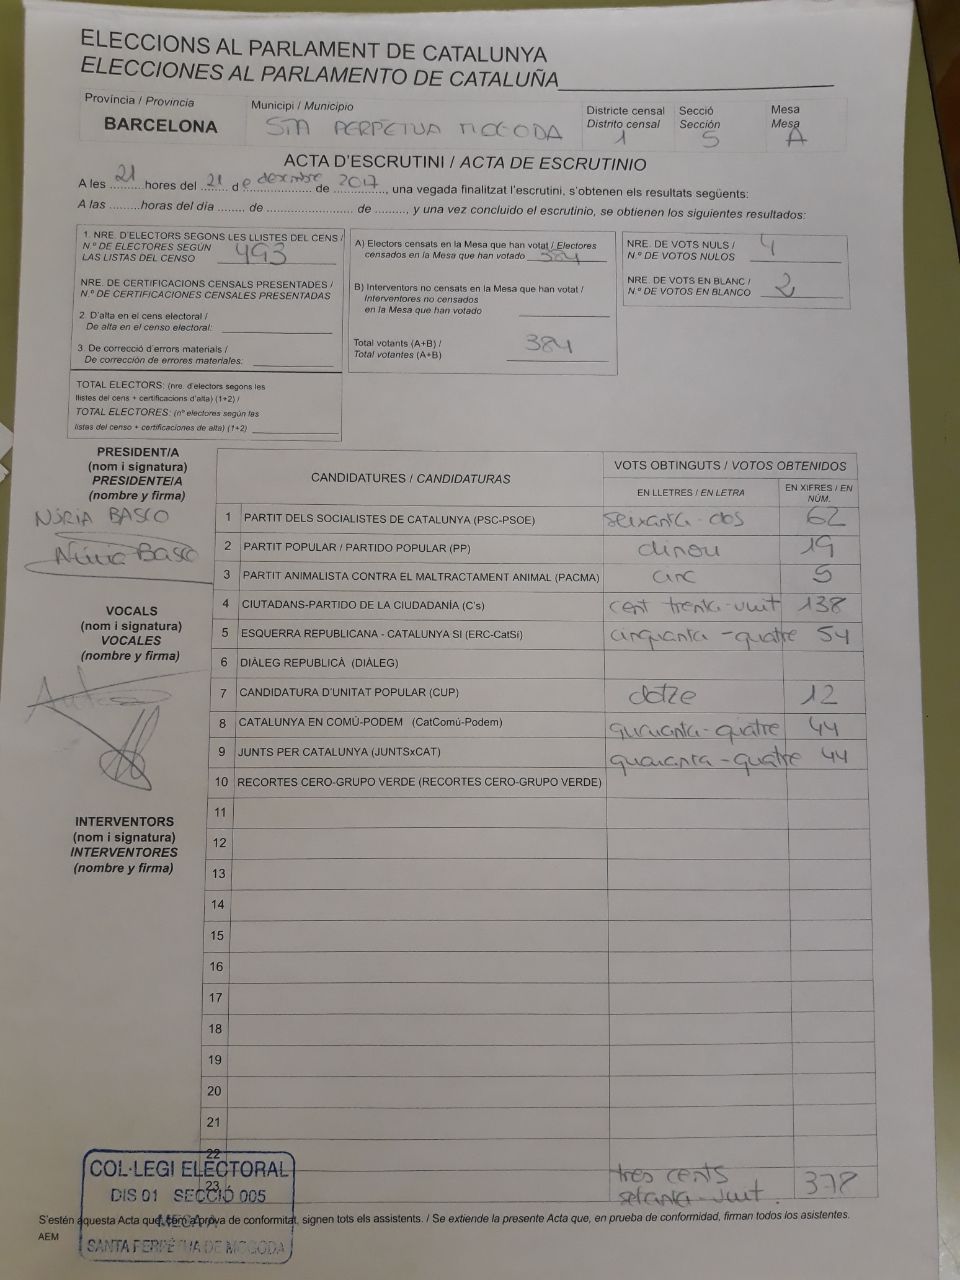 ELECCIONS AL PARLAMENT DE CATALUNYA
ELECCIONES AL PARLAMENTO DE CATALUÑA
Província / Provincia
BARCELONA
Municipi / Municipio
STA PERPETUA MOGODA
Districte censal
Distrito censal
1
Secció
Sección
5
Mesa
Mesa
A
ACTA D'ESCRUTINI / ACTA DE ESCRUTINIO
A les 21 hores del 21 de desembre de 2017, una vegada finalitzat l'escrutini, s'obtenen els resultats següents:
A las .........horas del día ........ de ........................ de ........., y una vez concluido el escrutinio, se obtienen los siguientes resultados:
1. NRE. D'ELECTORS SEGONS LES LLISTES DEL CENS /
N.º DE ELECTORES SEGÚN
LAS LISTAS DEL CENSO 493
NRE. DE CERTIFICACIONS CENSALS PRESENTADES /
N.º DE CERTIFICACIONES CENSALES PRESENTADAS
2. D'alta en el cens electoral /
De alta en el censo electoral:
3. De correcció d'errors materials /
De corrección de errores materiales:
TOTAL ELECTORS: (nre. d'electors segons les
llistes del cens + certificacions d'alta) (1+2) /
TOTAL ELECTORES: (nº electores según las
listas del censo + certificaciones de alta) (1+2)
A) Electors censats en la Mesa que han votat / Electores
censados en la Mesa que han votado 384
B) Interventors no censats en la Mesa que han votat /
Interventores no censados
en la Mesa que han votado
Total votants (A+B) /
Total votantes (A+B)
384
NRE. DE VOTS NULS /
N.º DE VOTOS NULOS
4
NRE. DE VOTS EN BLANC /
N.º DE VOTOS EN BLANCO
2
PRESIDENT/A
(nom i signatura)
PRESIDENTE/A
(nombre y firma)
NÚRIA BASCO
Núria Basco
VOCALS
(nom i signatura)
VOCALES
(nombre y firma)
INTERVENTORS
(nom i signatura)
INTERVENTORES
(nombre y firma)
CANDIDATURES / CANDIDATURAS
VOTS OBTINGUTS / VOTOS OBTENIDOS
EN LLETRES / EN LETRA
EN XIFRES / EN
NÚM.
1 PARTIT DELS SOCIALISTES DE CATALUNYA (PSC-PSOE) seixanta-dos 62
2 PARTIT POPULAR / PARTIDO POPULAR (PP) dinou 19
3 PARTIT ANIMALISTA CONTRA EL MALTRACTAMENT ANIMAL (PACMA) cinc 5
4 CIUTADANS-PARTIDO DE LA CIUDADANÍA (C's) cent trenta-vuit 138
5 ESQUERRA REPUBLICANA - CATALUNYA SI (ERC-CatSí) cinquanta-quatre 54
6 DIÀLEG REPUBLICÀ (DIÀLEG)
7 CANDIDATURA D'UNITAT POPULAR (CUP) dotze 12
8 CATALUNYA EN COMÚ-PODEM (CatComú-Podem) quaranta-quatre 44
9 JUNTS PER CATALUNYA (JUNTSxCAT) quaranta-quatre 44
10 RECORTES CERO-GRUPO VERDE (RECORTES CERO-GRUPO VERDE)
11
12
13
14
15
16
17
18
19
20
21
22
23
tres cents
setanta-vuit. 378
COL·LEGI ELECTORAL
DIS 01 SECCIÓ 005
MESA A
SANTA PERPÈTUA DE MOGODA
S'estén aquesta Acta que, com a prova de conformitat, signen tots els assistents. / Se extiende la presente Acta que, en prueba de conformidad, firman todos los asistentes.
AEM